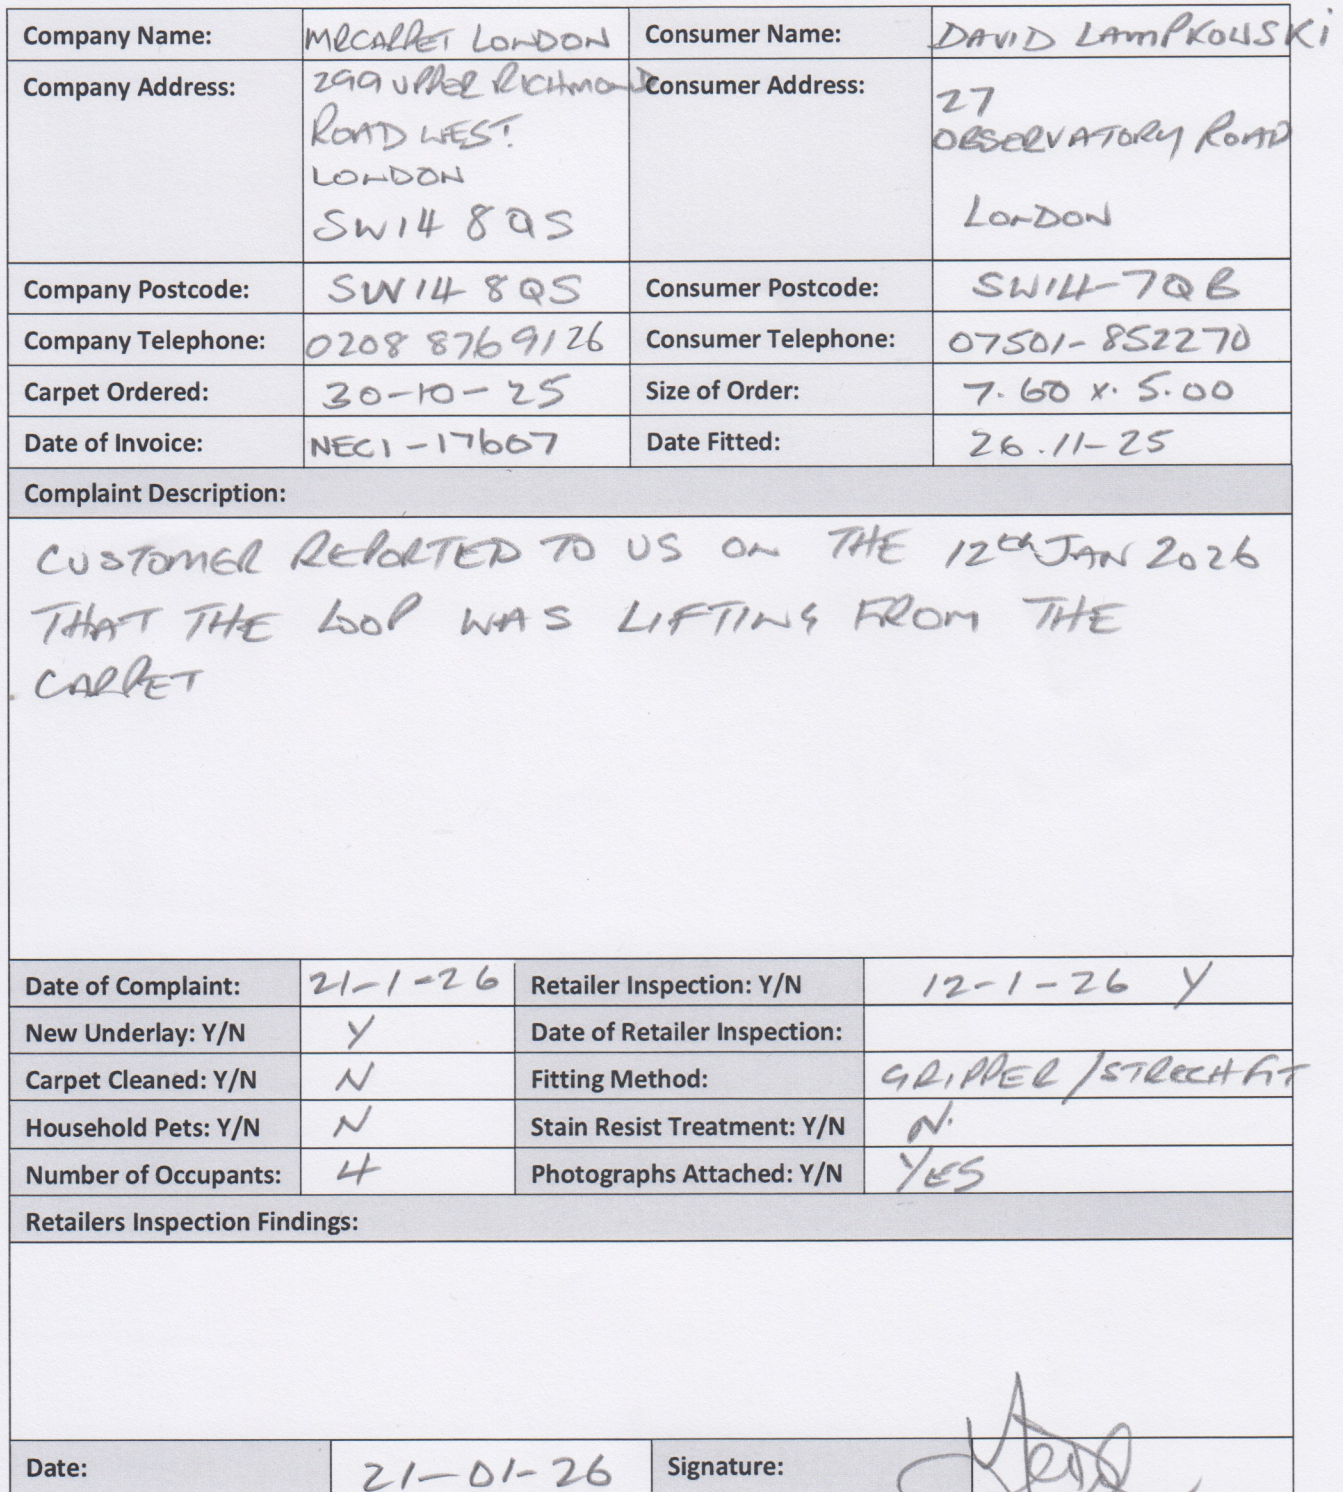 Company Name: MRCARPET LONDON Consumer Name: DAVID LAMPKOWSKI
Company Address: 299 UPPER RICHMOND Consumer Address: 27
ROAD WEST. OBSERVATORY ROAD
LONDON LONDON
SW14 8QS
Company Postcode: SW14 8QS Consumer Postcode: SW14-7QB
Company Telephone: 0208 8769126 Consumer Telephone: 07501-852270
Carpet Ordered: 30-10-25 Size of Order: 7.60 x. 5.00
Date of Invoice: NEC1-17607 Date Fitted: 26.11-25
Complaint Description:
CUSTOMER REPORTED TO US ON THE 12th JAN 2026
THAT THE LOOP WAS LIFTING FROM THE
CARPET
Date of Complaint: 21-1-26 Retailer Inspection: Y/N 12-1-26 Y
New Underlay: Y/N Y Date of Retailer Inspection:
Carpet Cleaned: Y/N N Fitting Method: GRIPPER/STRECH FIT
Household Pets: Y/N N Stain Resist Treatment: Y/N N.
Number of Occupants: 4 Photographs Attached: Y/N YES
Retailers Inspection Findings:
Date: 21-01-26 Signature: